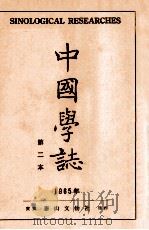 SINOLOGICAL RESEARCHES
中國學誌
第二本
1965年
泰山文物社